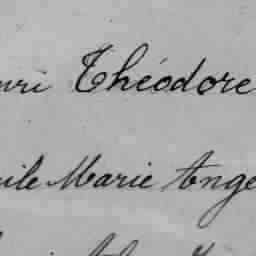 nri Théodore
ile Marie Ange